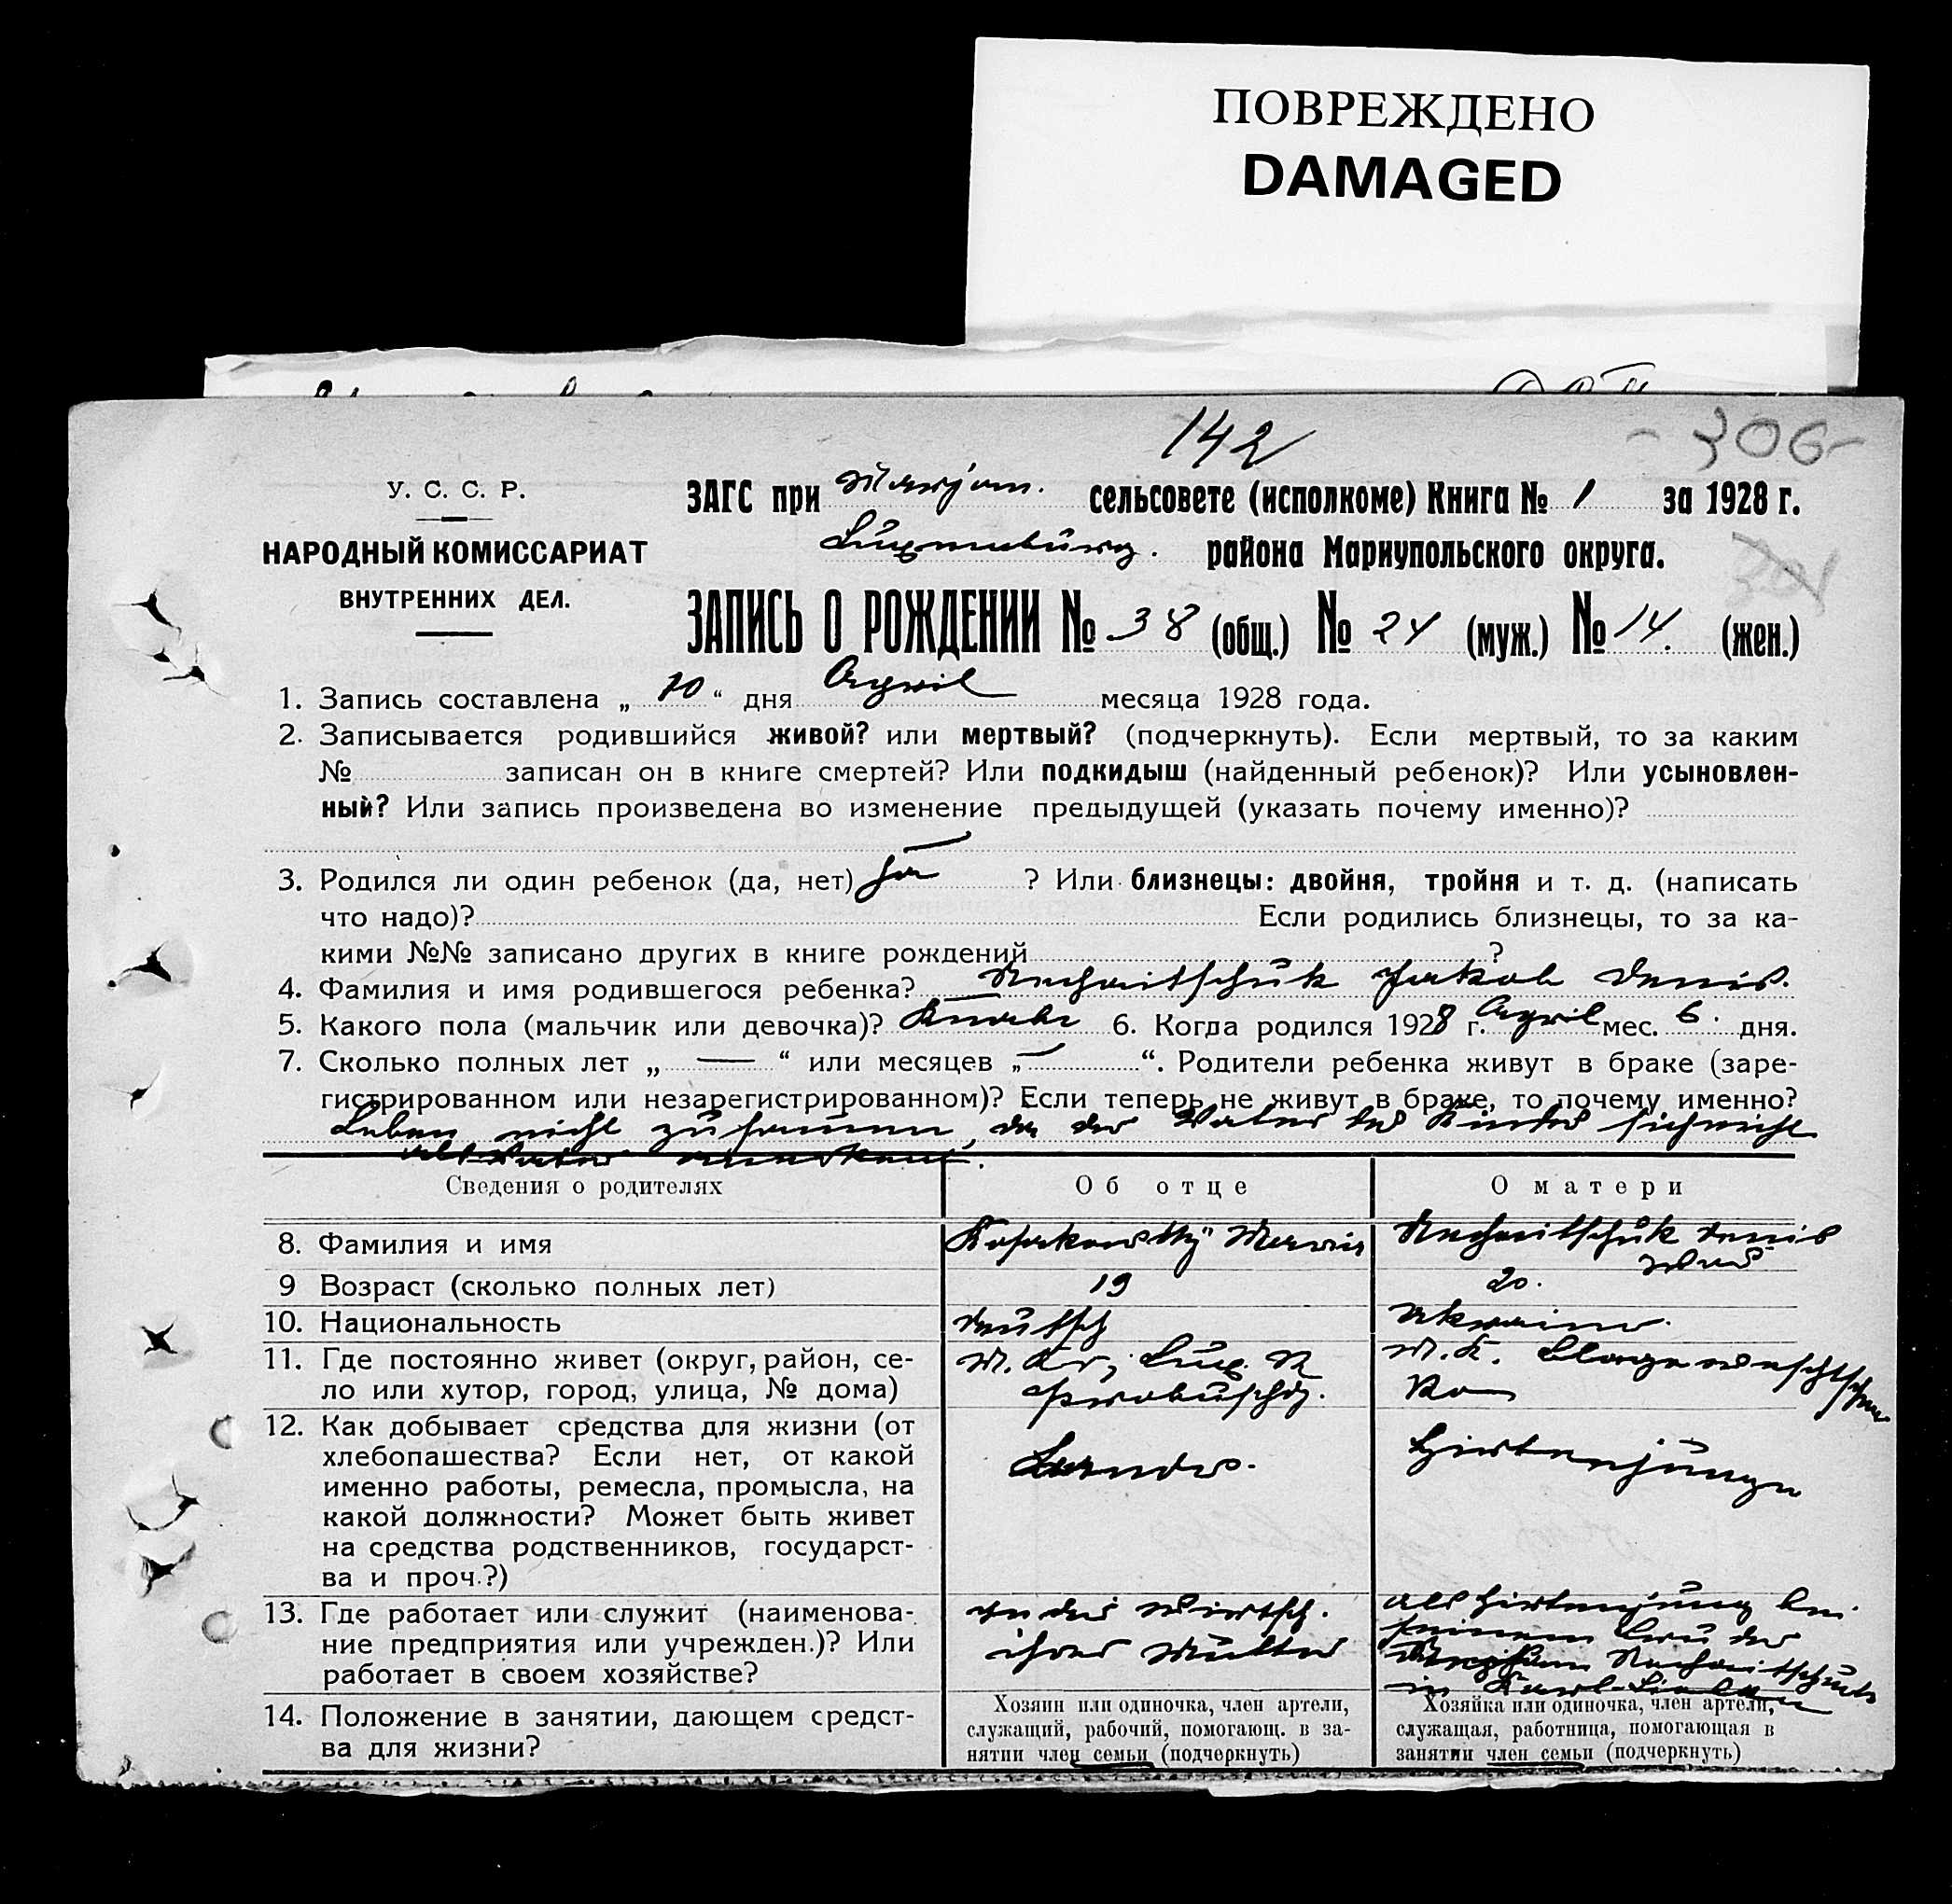 ПОВРЕЖДЕНО
DAMAGED
142
- 306 -
У. С. С. Р.
НАРОДНЫЙ КОМИССАРИАТ
ВНУТРЕННИХ ДЕЛ.
ЗАГС при Marjan. сельсовете (исполкоме) Книга № 1 за 1928 г.
Lüxemburg. района Мариупольского округа.
ЗАПИСЬ О РОЖДЕНИИ № 38 (общ.) № 24 (муж.) № 14. (жен.)
1. Запись составлена „ 10 “ дня April месяца 1928 года.
2. Записывается родившийся живой? или мертвый? (подчеркнуть). Если мертвый, то за каким
№ записан он в книге смертей? Или подкидыш (найденный ребенок)? Или усыновлен-
ный? Или запись произведена во изменение предыдущей (указать почему именно)?
3. Родился ли один ребенок (да, нет) ja ? Или близнецы: двойня, тройня и т. д. (написать
что надо)? Если родились близнецы, то за ка-
кими №№ записано других в книге рождений ?
4. Фамилия и имя родившегося ребенка? Nechaitschuk Jakob Denis.
5. Какого пола (мальчик или девочка)? Knabe 6. Когда родился 1928 г. April мес. 6. дня.
7. Сколько полных лет „ — “ или месяцев „ — “. Родители ребенка живут в браке (заре-
гистрированном или незарегистрированном)? Если теперь не живут в браке, то почему именно?
Leben nicht zusammen, da der Vater des Kindes sich nicht
als Vater anerkennt.
Сведения о родителях
Об отце
О матери
8. Фамилия и имя
Kosakowsky Maria
Nechaitschuk Denis
9 Возраст (сколько полных лет)
19
20.
10. Национальность
deutsch
Ukrainer.
11. Где постоянно живет (округ, район, се-
ло или хутор, город, улица, № дома)
M. Kr, Lüx. R
M. K.
Ron
12. Как добывает средства для жизни (от
хлебопашества? Если нет, от какой
именно работы, ремесла, промысла, на
какой должности? Может быть живет
на средства родственников, государст-
ва и проч.?)
Landw.
Hirtenjunge
13. Где работает или служит (наименова-
ние предприятия или учрежден.)? Или
работает в своем хозяйстве?
In der Wirtsch.
ihrer Mutter
als Hirtenjung bei
seinem Bruder
Nechaitschuk
in
14. Положение в занятии, дающем средст-
ва для жизни?
Хозяин или одиночка, член артели,
служащий, рабочий, помогающ. в за-
нятии член семьи (подчеркнуть)
Хозяйка или одиночка, член артели,
служащая, работница, помогающая в
занятии член семьи (подчеркнуть)